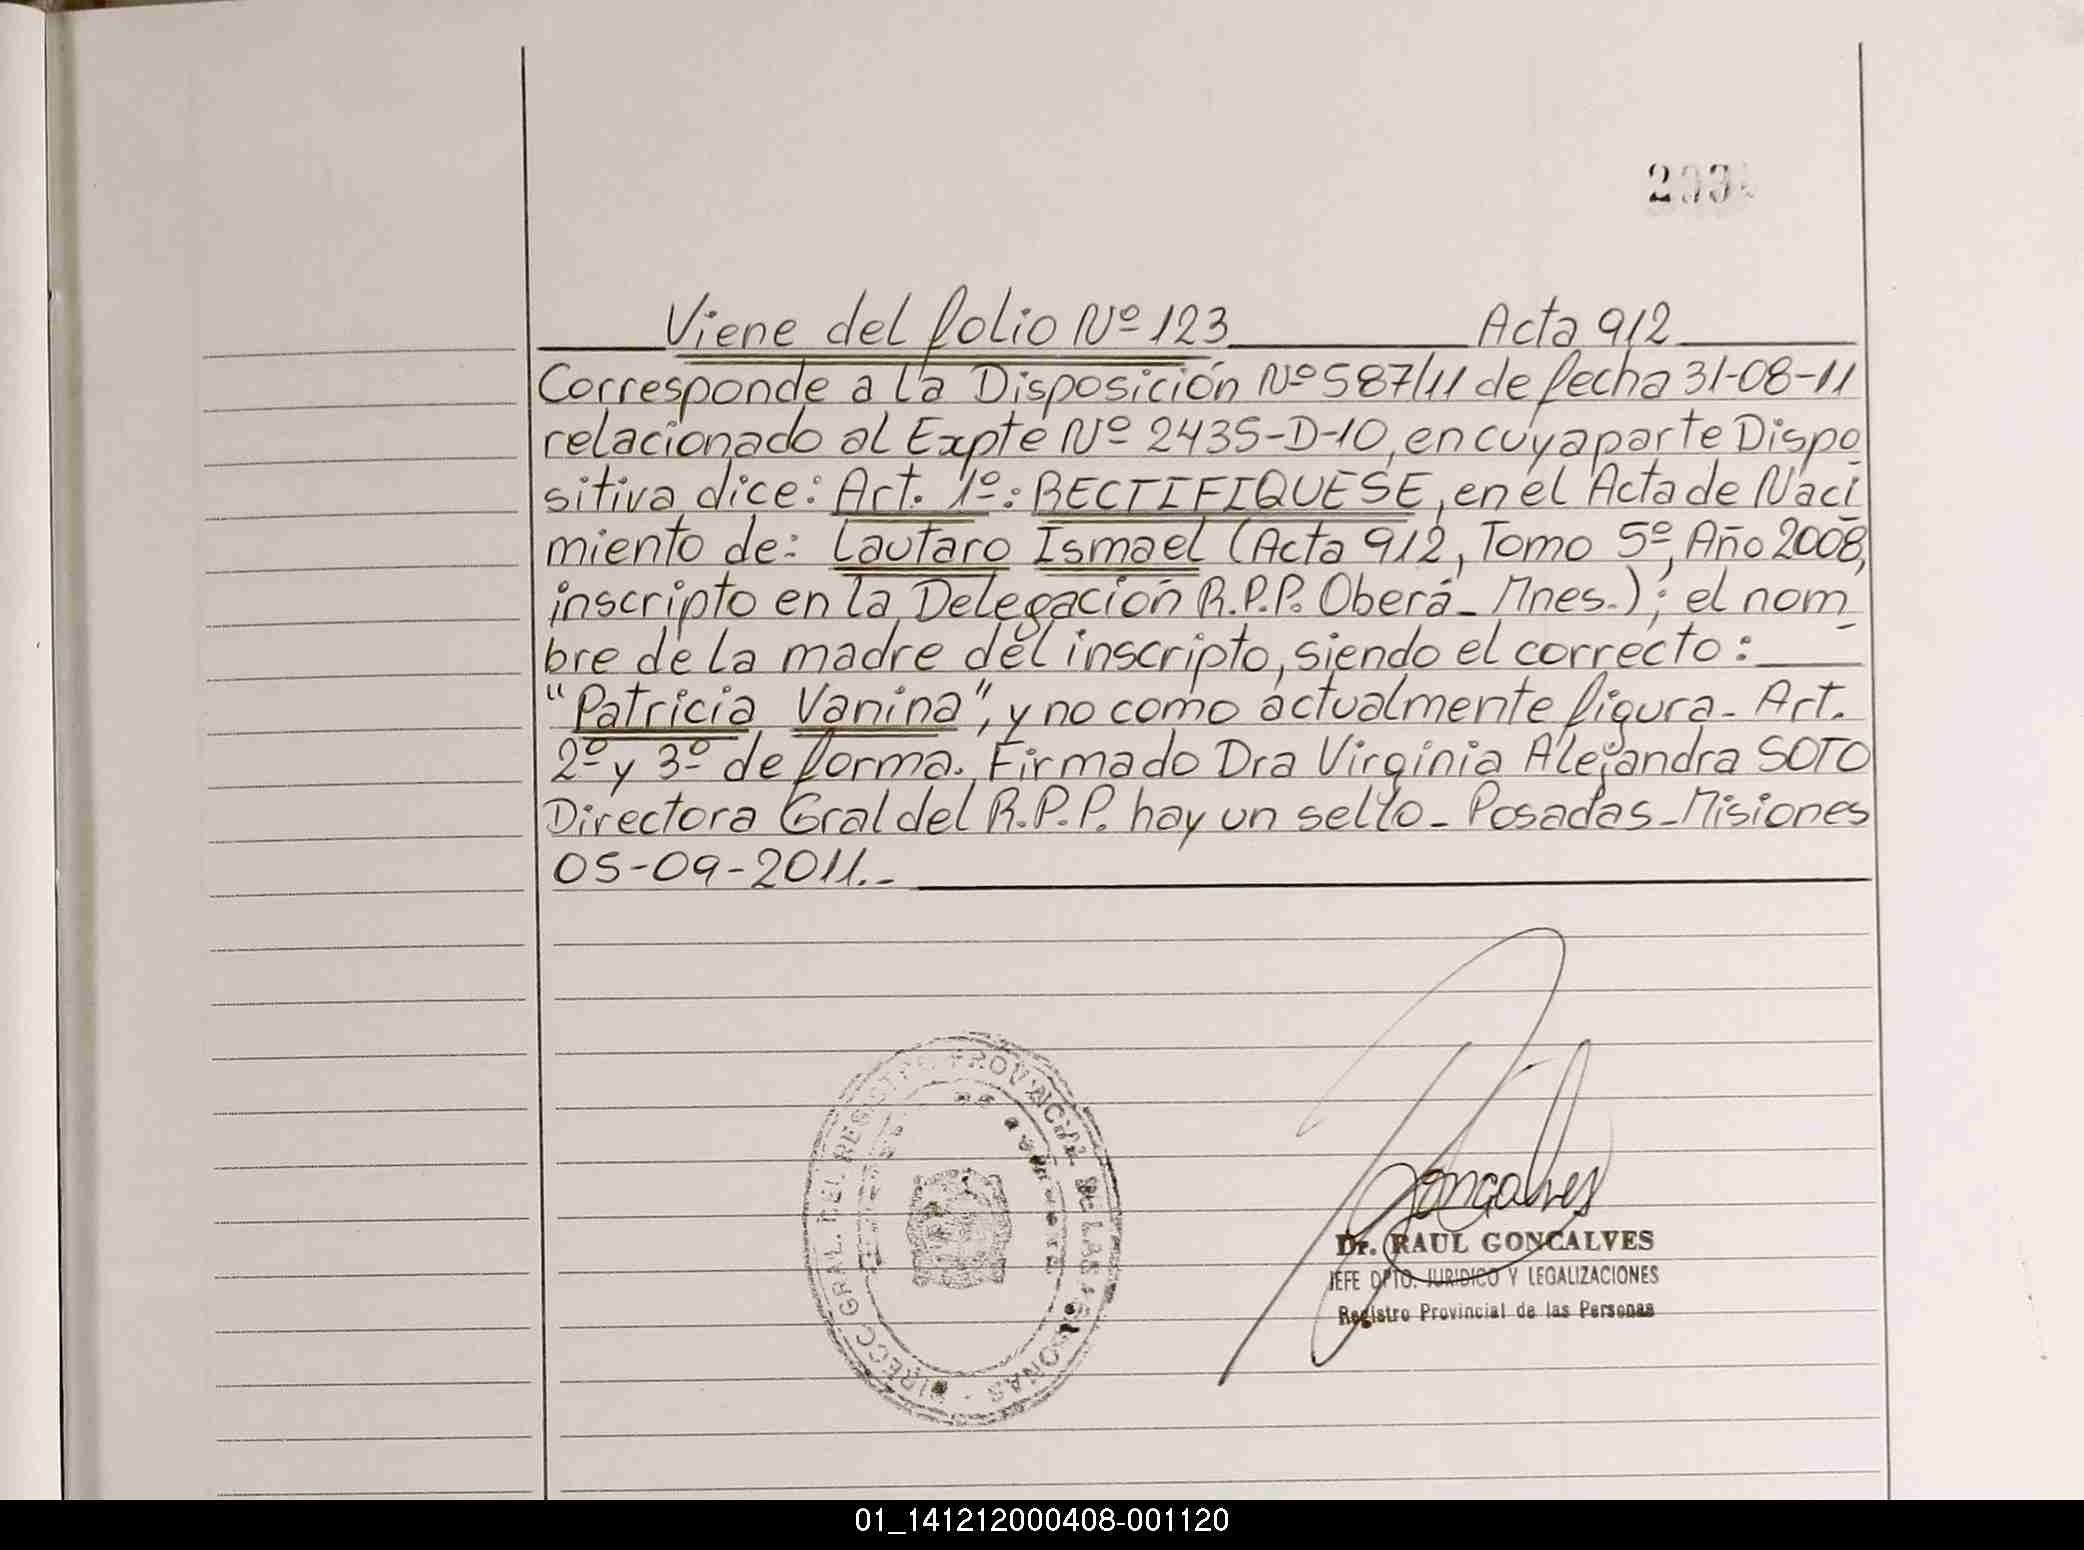 Viene del folio Nº 123 Acta 912
Corresponde a la Disposición Nº 587/11 de fecha 31-08-11
relacionado al Expte Nº 2435-D-10, en cuya parte Dispo
sitiva dice: Art. 1º: RECTIFIQUESE, en el Acta de Naci
miento de: Lautaro Ismael (Acta 912, Tomo 5º, Año 2008,
inscripto en la Delegación R.P.P. Oberá_ Mnes.); el nom
bre de la madre del inscripto, siendo el correcto:
"Patricia Vanina", y no como actualmente figura_ Art.
2º y 3º de forma. Firmado Dra Virginia Alejandra SOTO
Directora Gral del R.P.P. hay un sello_ Posadas_Misiones
05-09-2011._
DIRECC GRAL. DEL REGISTRO PROVINCIAL DE LAS PERSONAS
Goncalves
Dr. RAUL GONCALVES
JEFE DPTO. JURIDICO Y LEGALIZACIONES
Registro Provincial de las Personas
01_141212000408-001120